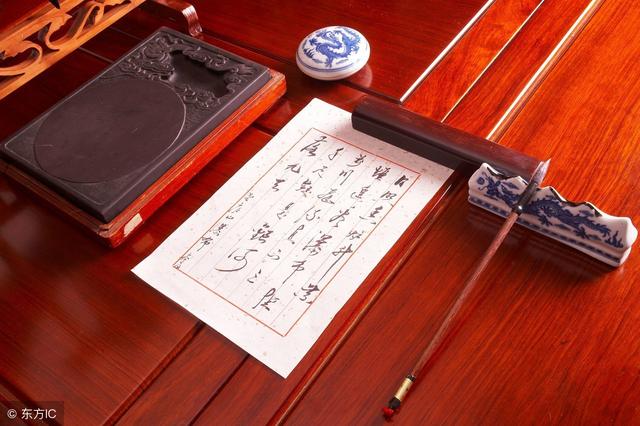 日照香炉生紫
烟遥看瀑布挂
前川飞流直下三
千尺疑是银河
落九天
© 东方IC